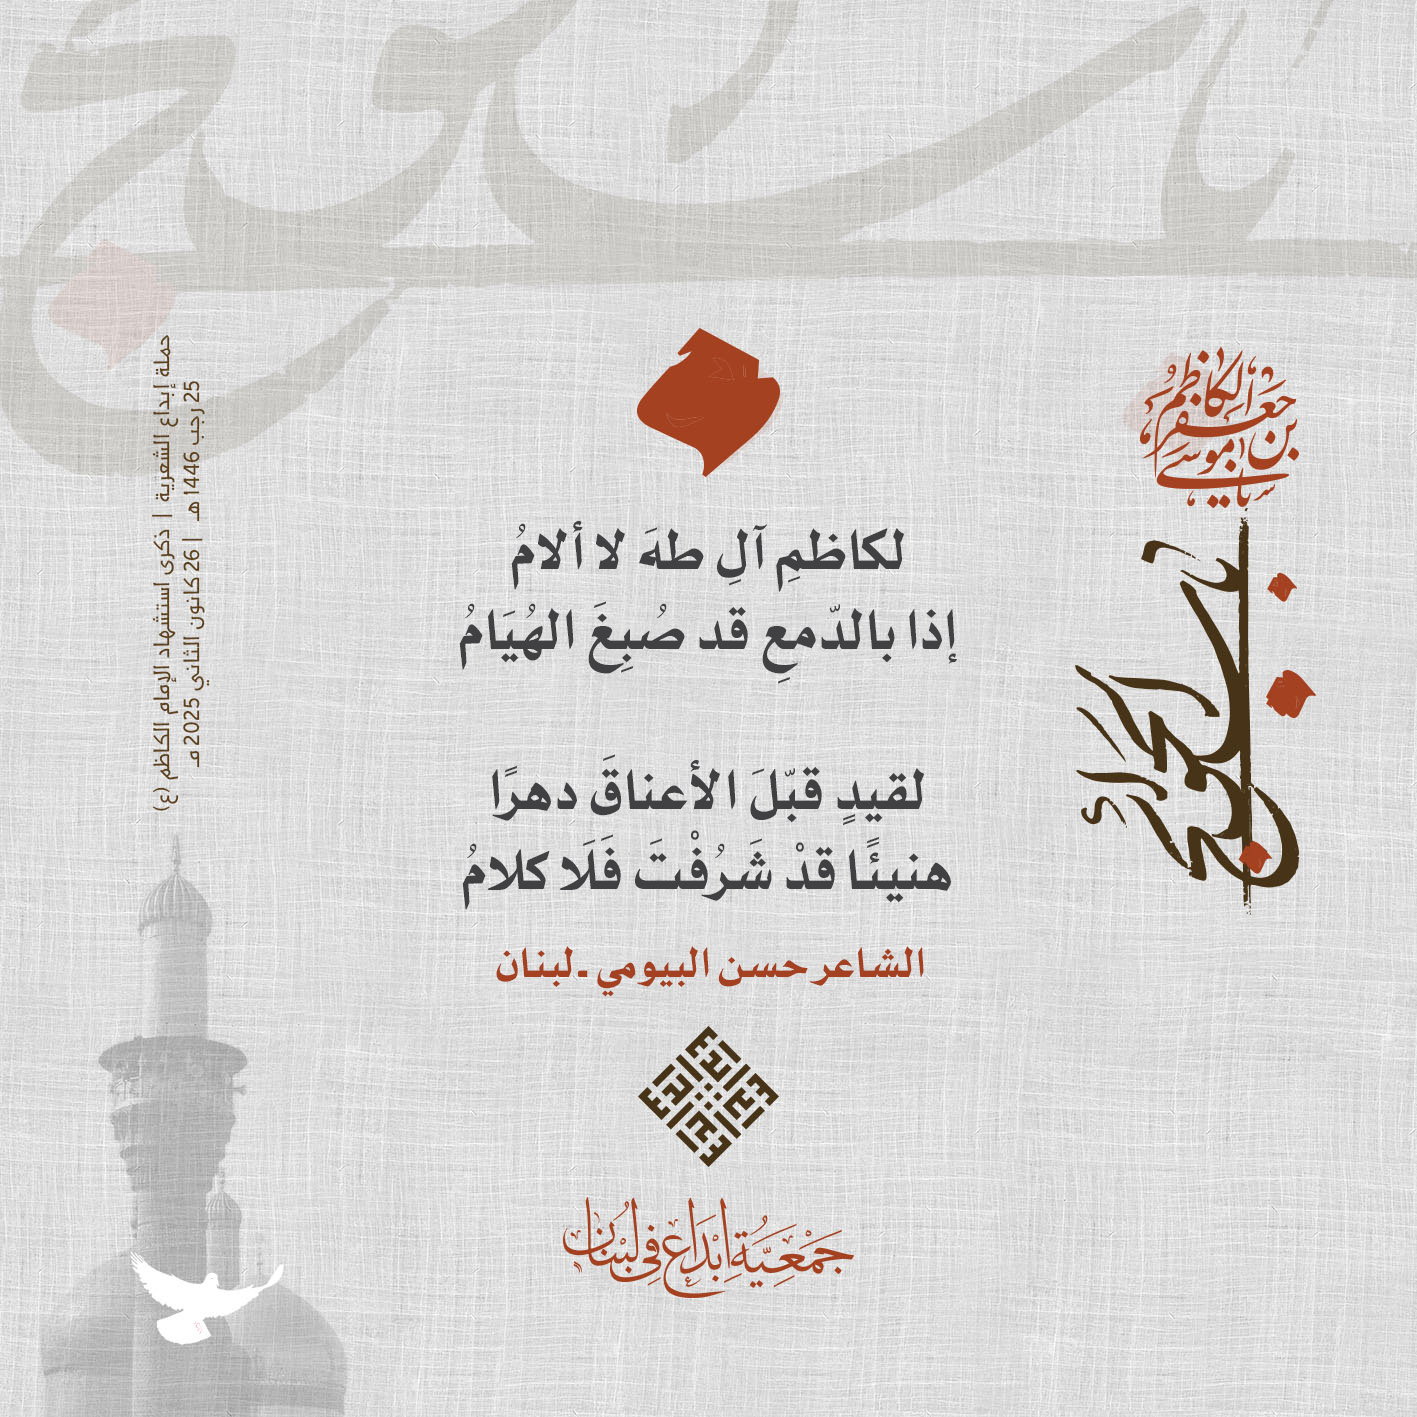 يا موسى
بن جعفر
الكاظم
يا باب الحوائج
لكاظمِ آلِ طهَ لا ألامُ
إذا بالدّمعِ قد صُبِغَ الهُيَامُ
لقيدٍ قبّلَ الأعناقَ دهرًا
هنيئًا قدْ شَرُفْتَ فَلَا كلامُ
الشاعر حسن البيومي ـ لبنان
جَمْعِيَّةُ إِبْدَاع فِي لُبْنَان
حملة إبداع الشعرية | ذكرى استشهاد الإمام الكاظم (ع)
25 رجب 1446 هـ | 26 كانون الثاني 2025 مـ